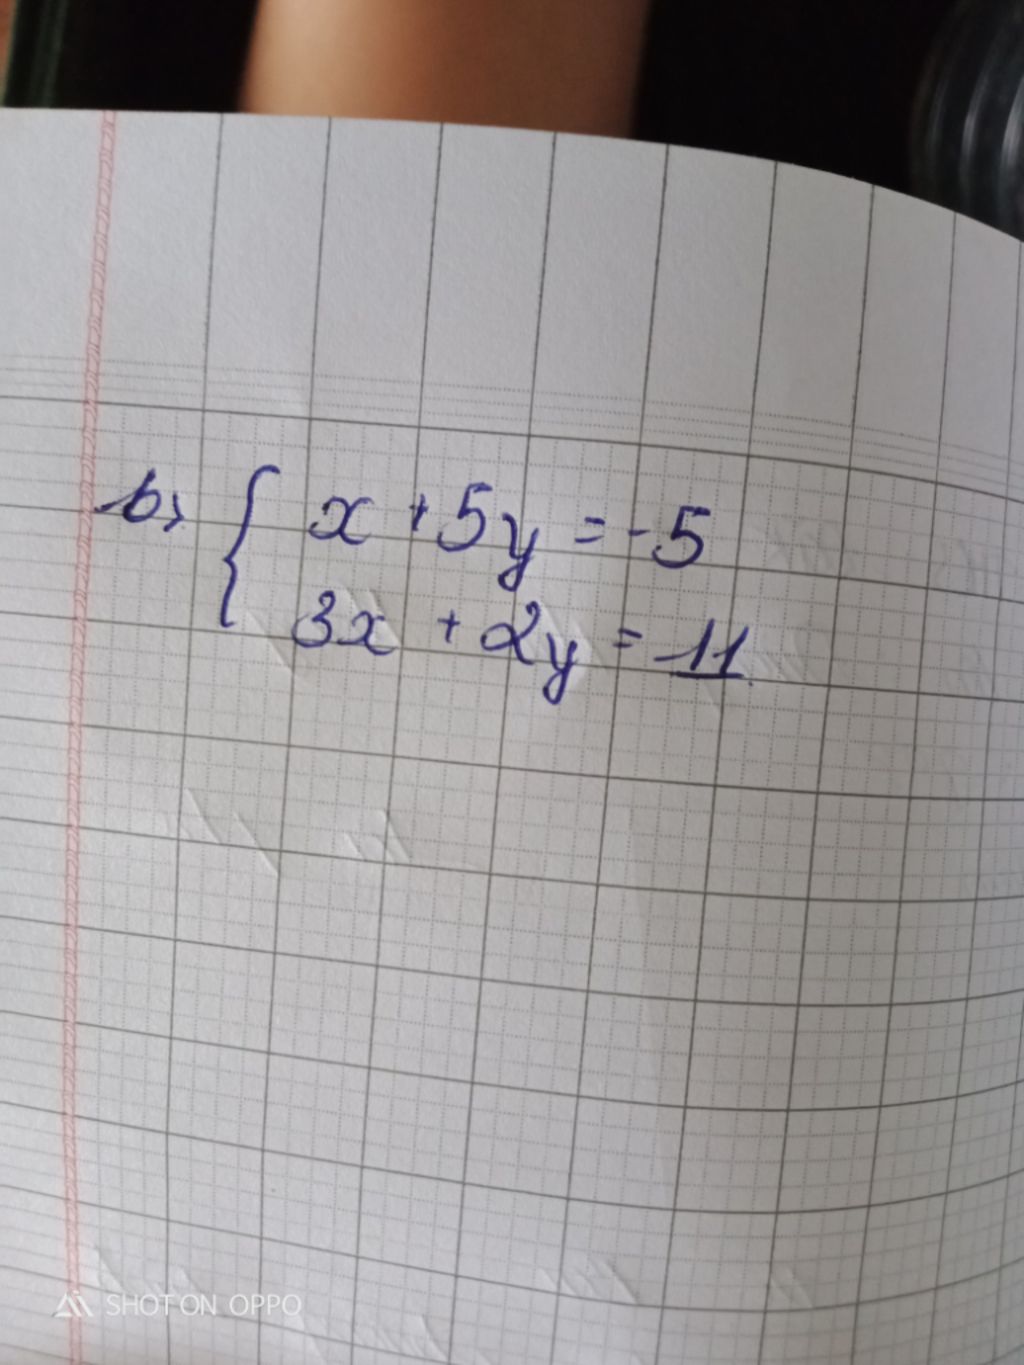 b) { x + 5y = -5
3x + 2y = 11
SHOT ON OPPO